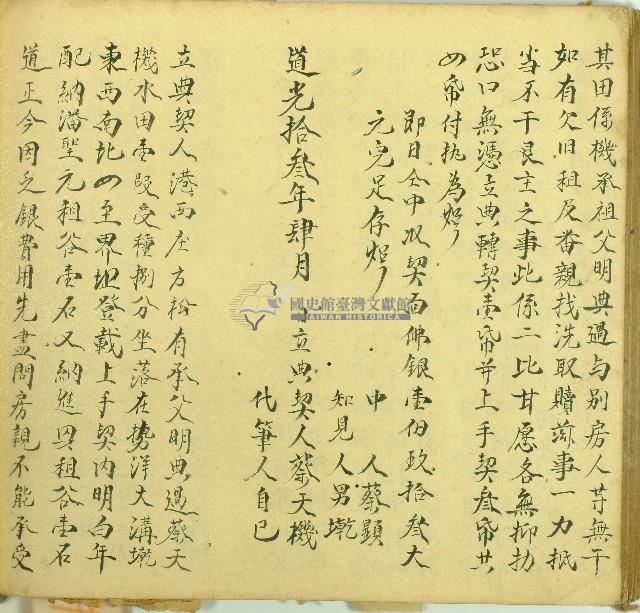 其田係機承祖父明典過与別房人等無干
如有欠旧租及番親找洗取贖茲事一力抵
当不干艮主之事此係二比甘愿各無抑勒
恐口無憑立典轉契壹帋并上手契叁帋共
四帋付执為炤
即日仝中収契面佛銀壹佰玖拾叁大
元完足存炤
中人蔡顕
知見人男墘
道光拾叁年肆月 日立典契人蔡天機
代筆人自己
立典契人港西庄方松有承父明典過蔡天
機水田壹段受種捌分坐落在勢洋大溝墘
東西南北四至界址登載上手契内明白年
配納潘聖元租谷壹石又納進租谷壹石
道正今因乏銀費用先盡問房親不能承受
國史館臺灣文獻館
TAIWAN HISTORICA